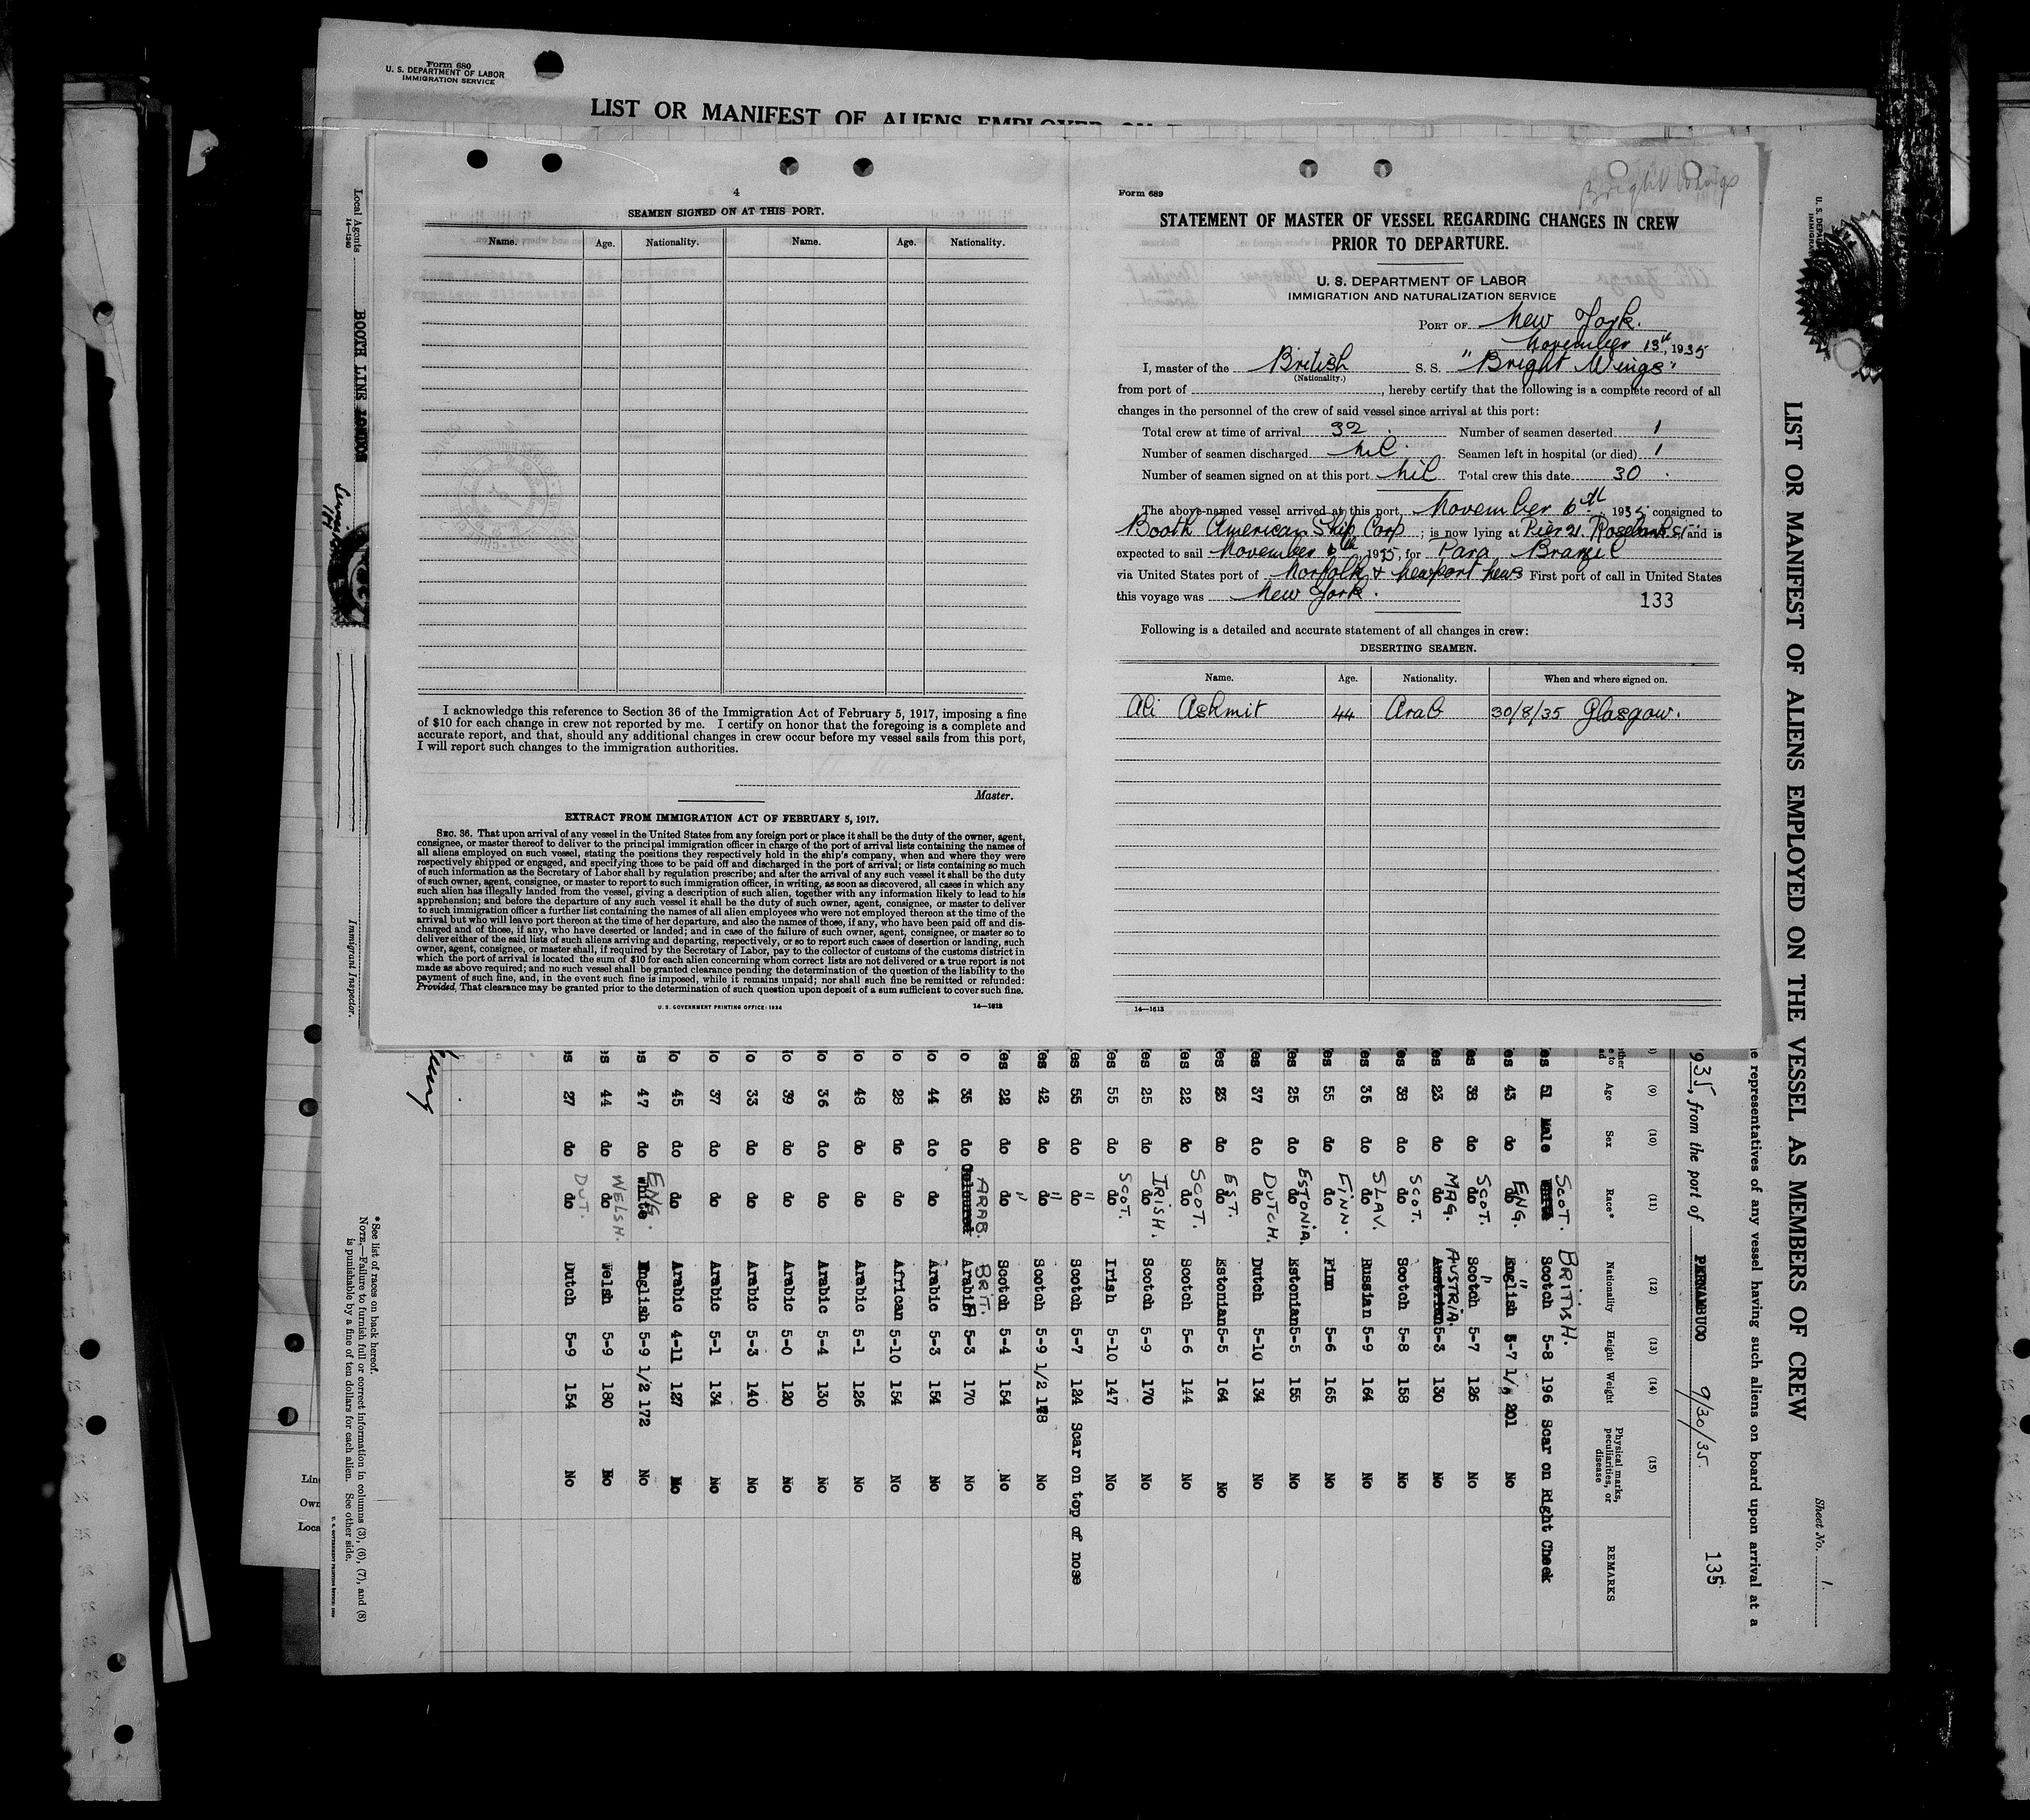 Form 680
U. S. DEPARTMENT OF LABOR
IMMIGRATION SERVICE
LIST OR MANIFEST OF ALIENS EMPLOYED ON
4
SEAMEN SIGNED ON AT THIS PORT.
Name. Age. Nationality. Name. Age. Nationality.
I acknowledge this reference to Section 36 of the Immigration Act of February 5, 1917, imposing a fine
of $10 for each change in crew not reported by me. I certify on honor that the foregoing is a complete and
accurate report, and that, should any additional changes in crew occur before my vessel sails from this port,
I will report such changes to the immigration authorities.
Master.
EXTRACT FROM IMMIGRATION ACT OF FEBRUARY 5, 1917.
SEC. 36. That upon arrival of any vessel in the United States from any foreign port or place it shall be the duty of the owner, agent,
consignee, or master thereof to deliver to the principal immigration officer in charge of the port of arrival lists containing the names of
all aliens employed on such vessel, stating the positions they respectively hold in the ship's company, when and where they were
respectively shipped or engaged, and specifying those to be paid off and discharged in the port of arrival; or lists containing so much
of such information as the Secretary of Labor shall by regulation prescribe; and after the arrival of any such vessel it shall be the duty
of such owner, agent, consignee, or master to report to such immigration officer, in writing, as soon as discovered, all cases in which any
such alien has illegally landed from the vessel, giving a description of such alien, together with any information likely to lead to his
apprehension; and before the departure of any such vessel it shall be the duty of such owner, agent, consignee, or master to deliver
to such immigration officer a further list containing the names of all alien employees who were not employed thereon at the time of the
arrival but who will leave port thereon at the time of her departure, and also the names of those, if any, who have been paid off and dis-
charged and of those, if any, who have deserted or landed; and in case of the failure of such owner, agent, consignee, or master so to
deliver either of the said lists of such aliens arriving and departing, respectively, or so to report such cases of desertion or landing, such
owner, agent, consignee, or master shall, if required by the Secretary of Labor, pay to the collector of customs of the customs district in
which the port of arrival is located the sum of $10 for each alien concerning whom correct lists are not delivered or a true report is not
made as above required; and no such vessel shall be granted clearance pending the determination of the question of the liability to the
payment of such fine, and, in the event such fine is imposed, while it remains unpaid; nor shall such fine be remitted or refunded:
Provided, That clearance may be granted prior to the determination of such question upon deposit of a sum sufficient to cover such fine.
U. S. GOVERNMENT PRINTING OFFICE: 1934 14—1613
Bright Wings
Form 689
STATEMENT OF MASTER OF VESSEL REGARDING CHANGES IN CREW
PRIOR TO DEPARTURE.
U. S. DEPARTMENT OF LABOR
IMMIGRATION AND NATURALIZATION SERVICE
PORT OF New York.
November 13th, 1935
I, master of the British S. S. "Bright Wings"
(Nationality.)
from port of , hereby certify that the following is a complete record of all
changes in the personnel of the crew of said vessel since arrival at this port:
Total crew at time of arrival 32. Number of seamen deserted 1
Number of seamen discharged Nil. Seamen left in hospital (or died) 1
Number of seamen signed on at this port Nil Total crew this date 30.
The above-named vessel arrived at this port November 6th 1935 consigned to
Booth American Ship Corp; is now lying at Pier 21. and is
expected to sail November 1935, for Para Brazil
via United States port of Norfolk & Newport News First port of call in United States
this voyage was New York.
133
Following is a detailed and accurate statement of all changes in crew:
DESERTING SEAMEN.
Name. Age. Nationality. When and where signed on.
Ali Ashmit 44 Arab 30/8/35 Glasgow.
14—1613
LIST OR MANIFEST OF ALIENS EMPLOYED ON THE VESSEL AS MEMBERS OF CREW
Sheet No. 1.
representatives of any vessel having such aliens on board upon arrival at a
935, from the port of PERNAMBUCO 9/30/35.
135
(9) (10) (11) (12) (13) (14) (15)
Age Sex Race* Nationality Height Weight Physical marks, peculiarities, or disease REMARKS
es 51 Male SCOT. BRITISH. Scotch 5-8 196 Scar on Right Cheek
es 43 do ENG. do " English 5-7 1/2 201 No
es 38 do SCOT. do " Scotch 5-7 126 No
es 23 do MAG. do AUSTRIA. Austrian 5-3 130 No
es 38 do SCOT. do Scotch 5-8 158 No
es 35 do SLAV. do Russian 5-9 164 No
es 55 do FINN. do Finn 5-6 165 No
es 25 do ESTONIA. do Estonian 5-5 155 No
es 37 do DUTCH. do Dutch 5-10 134 No
es 23 do EST. do Estonian 5-5 164 No
es 22 do SCOT. do Scotch 5-6 144 No
es 25 do IRISH. do Scotch 5-9 170 No
es 55 do SCOT. do Irish 5-10 147 No
es 55 do " do Scotch 5-7 124 Scar on top of nose
es 42 do " do Scotch 5-9 1/2 No
es 22 do " do Scotch 5-4 154 No
o 35 do ARAB. Coloured BRIT. Arabic 5-3 170 No
o 44 do do Arabic 5-3 154 No
o 28 do do African 5-10 154 No
o 48 do do Arabic 5-1 126 No
o 36 do do Arabic 5-4 130 No
o 39 do do Arabic 5-0 120 No
o 33 do do Arabic 5-3 140 No
o 37 do do Arabic 5-1 134 No
o 45 do do Arabic 4-11 127 No
es 47 do ENG. White English 5-9 1/2 172 No
es 44 do WELSH. do Welsh 5-9 180 No
es 27 do DUT. do Dutch 5-9 154 No
*See list of races on back hereof.
NOTE.—Failure to furnish full or correct information in columns (3), (6), (7), and (8)
is punishable by a fine of ten dollars for each alien. See other side.
Local Agents BOOTH LINE
14—1240
Immigrant Inspector.
Line
Own
Loca